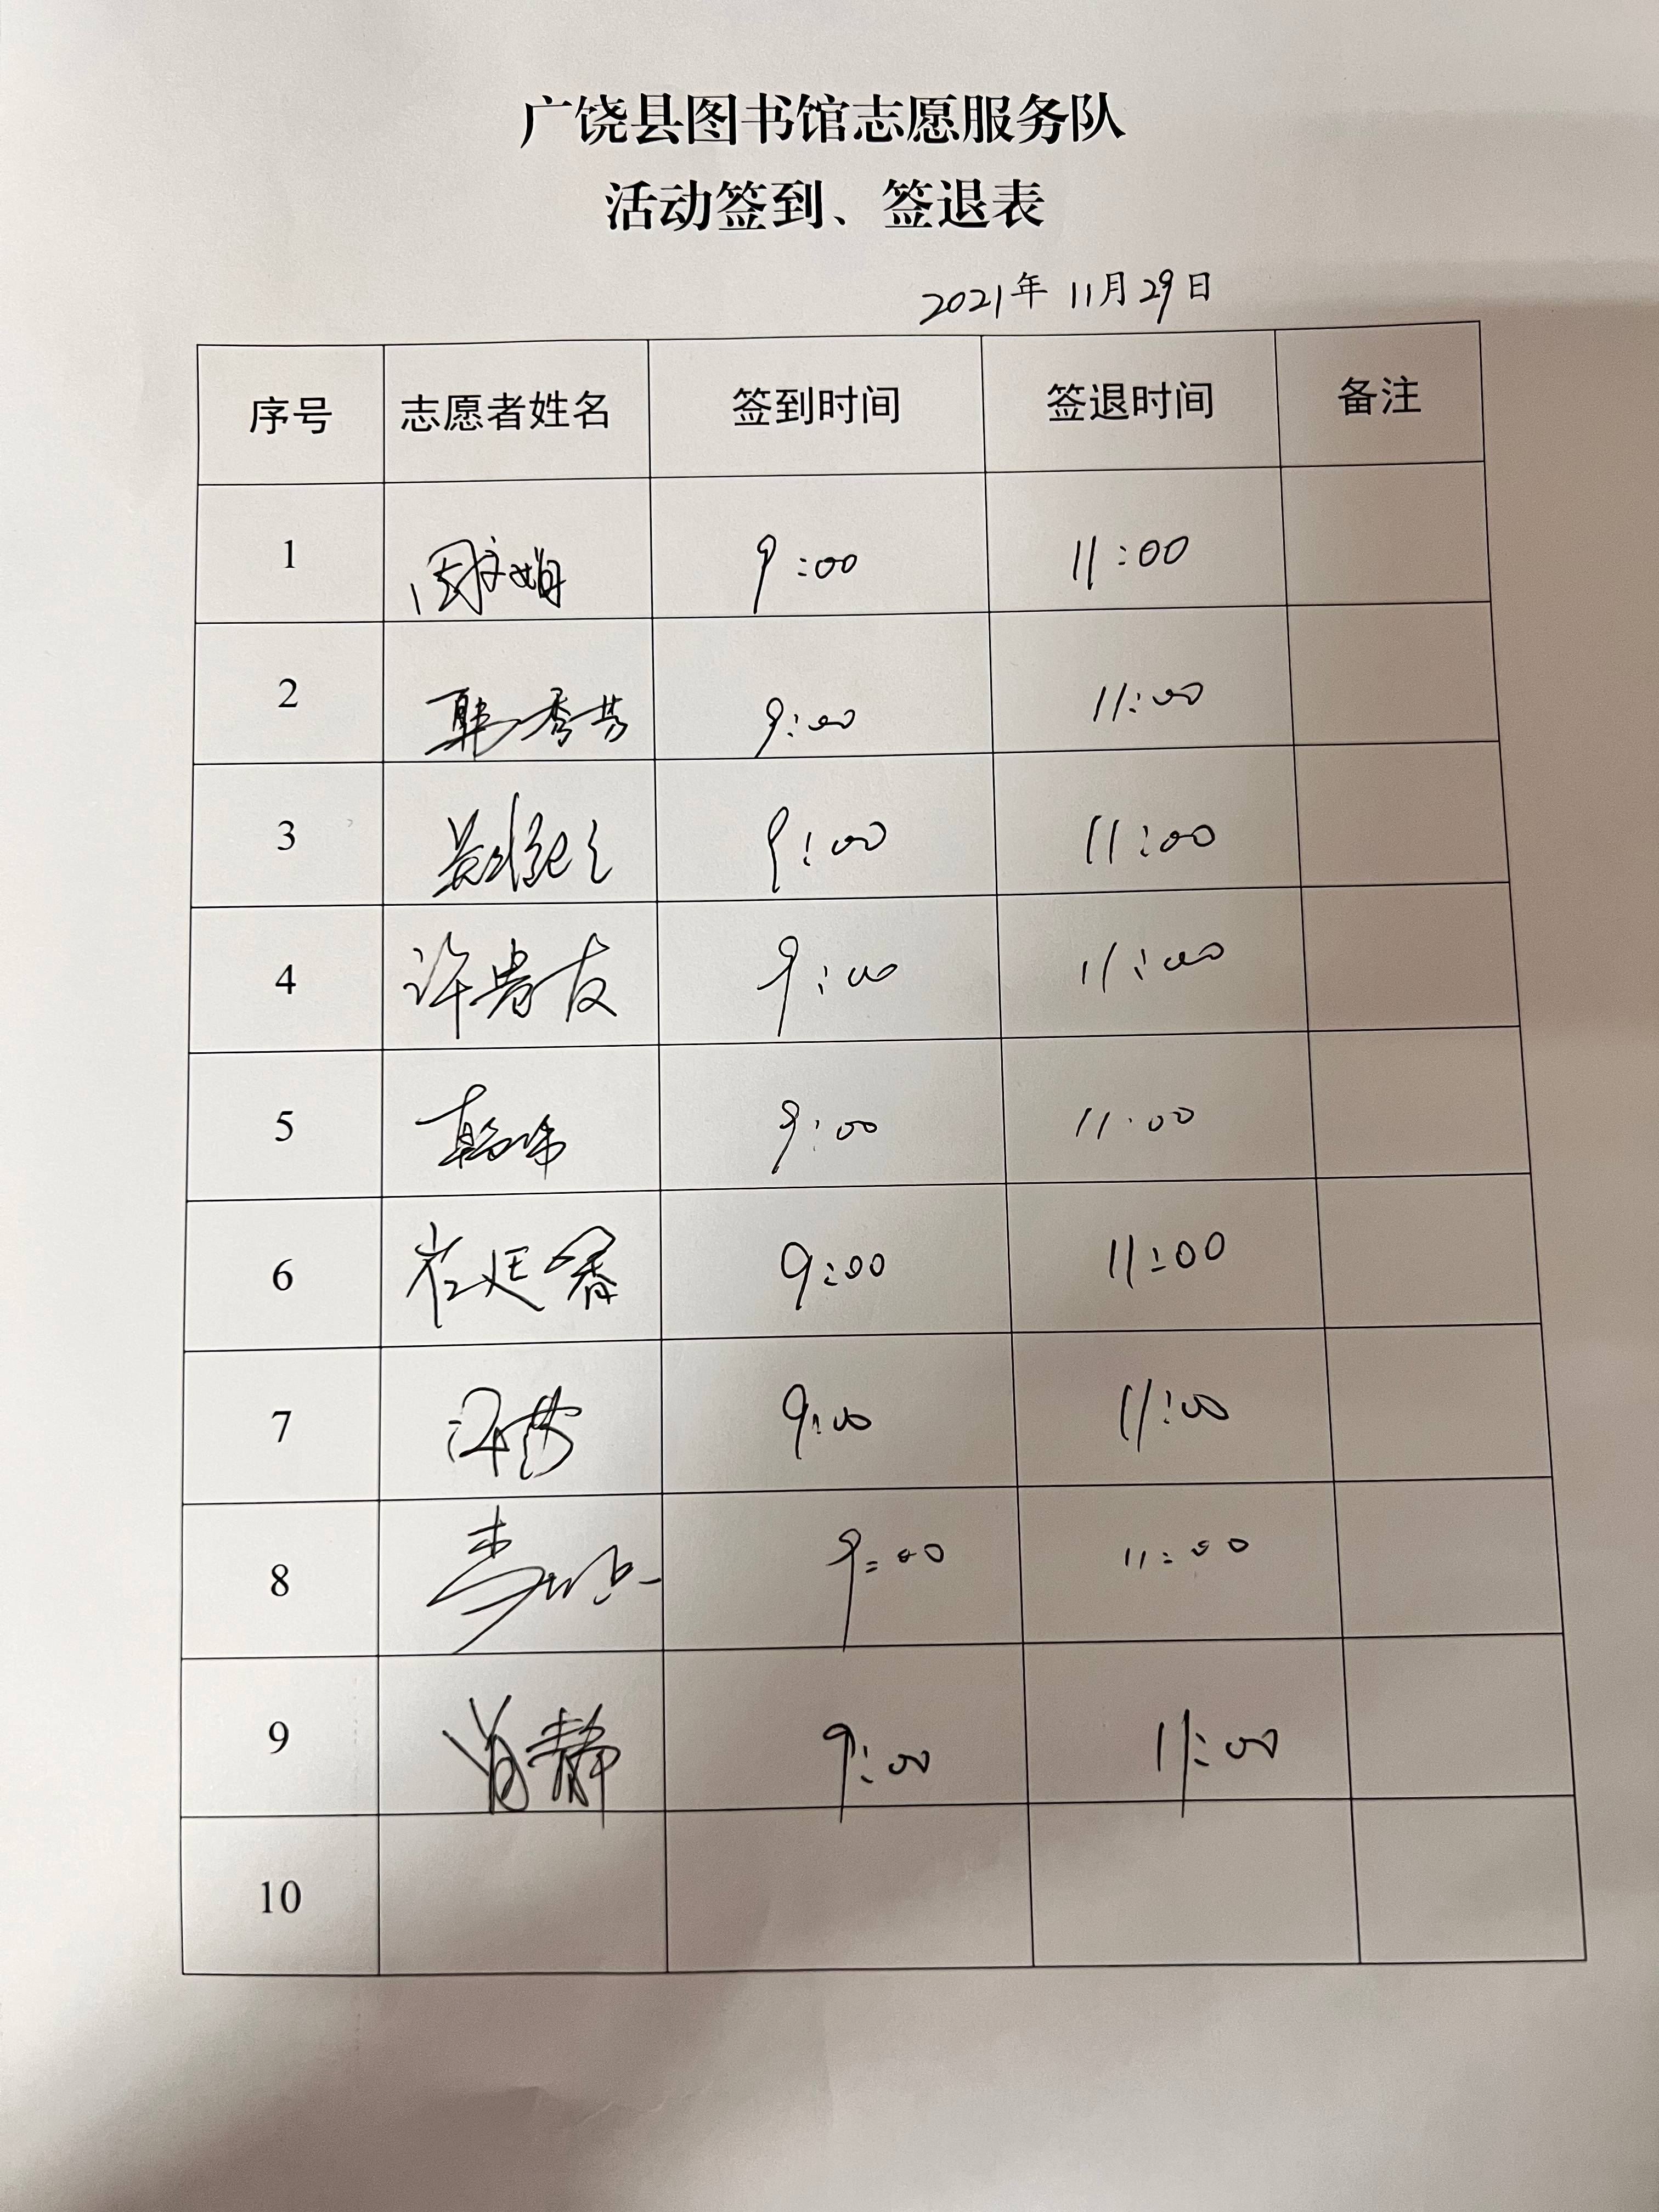 广饶县图书馆志愿服务队
活动签到、签退表
2021年 11月29日
序号 志愿者姓名 签到时间 签退时间 备注
1 9:00 11:00
2 韩秀芳 9:00 11:00
3 9:00 11:00
4 许贵友 9:00 11:00
5 9:00 11:00
6 崔廷香 9:00 11:00
7 9:00 11:00
8 李 9:00 11:00
9 肖静 9:00 11:00
10